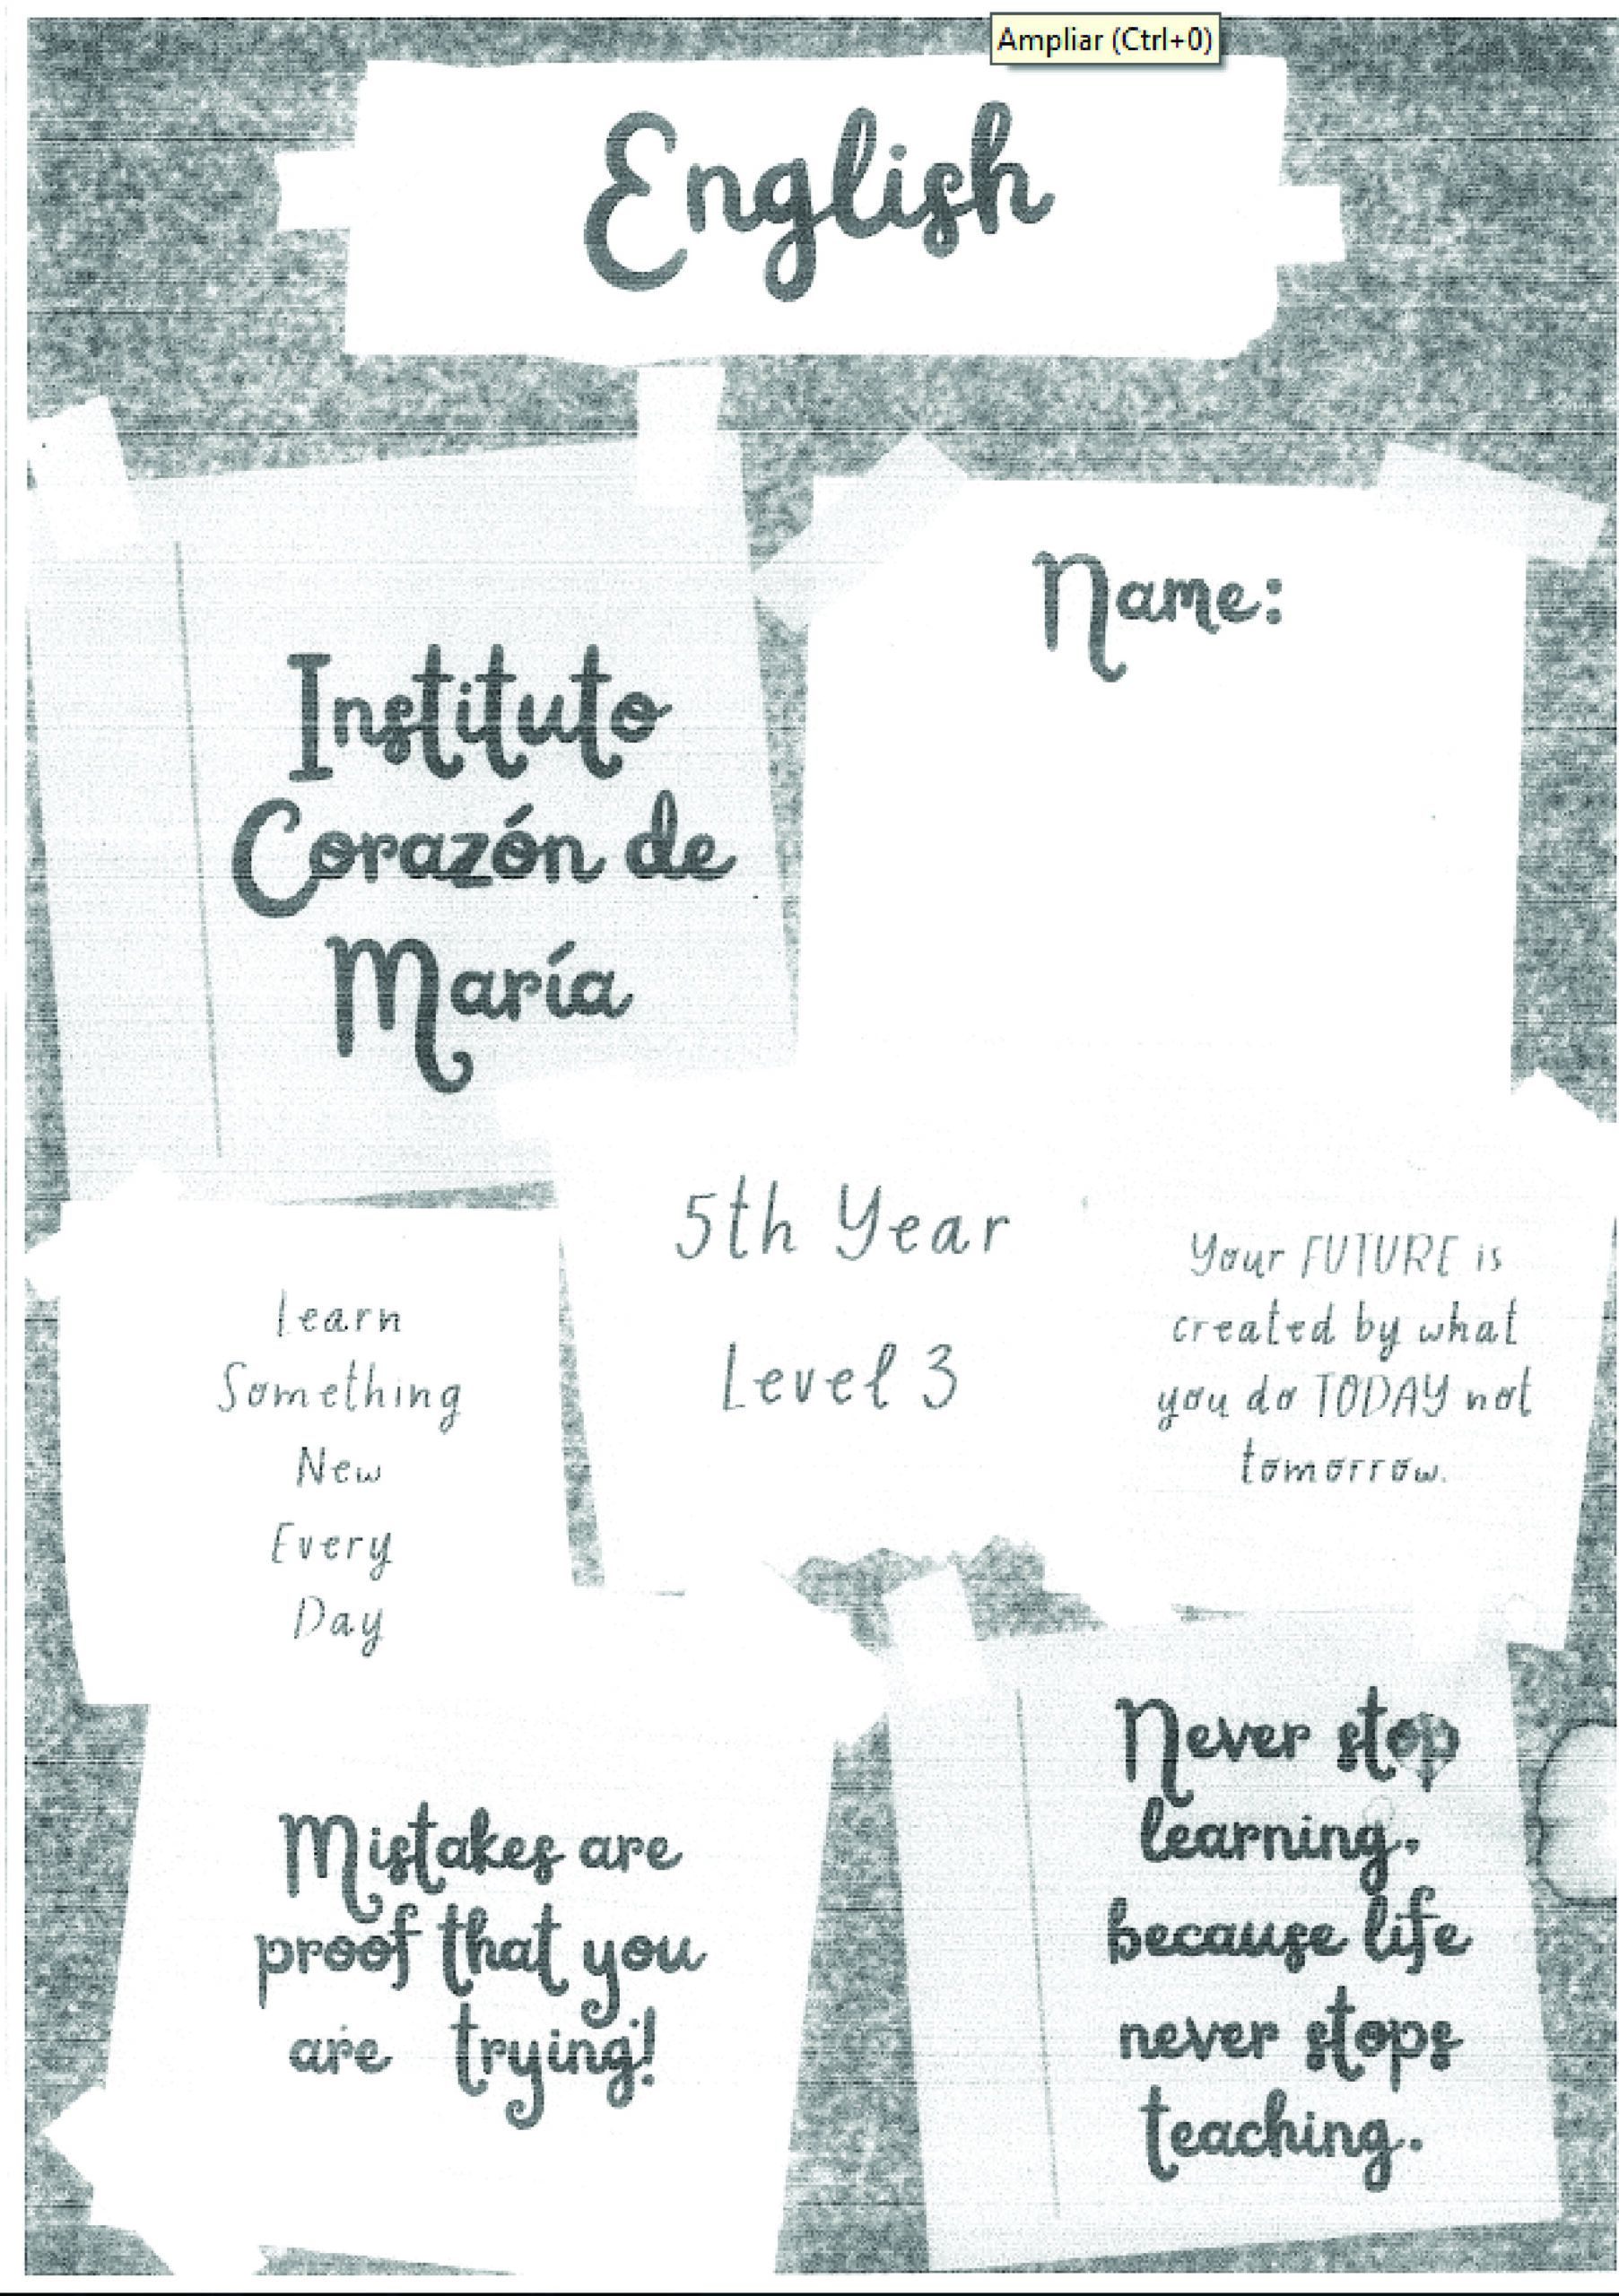 Ampliar (Ctrl+0)
English
Instituto
Corazón de
María
Name:
5th Year
Level 3
Learn
Something
New
Every
Day
Your FUTURE is
created by what
you do TODAY not
tomorrow.
Mistakes are
proof that you
are trying!
Never stop
learning.
because life
never stops
teaching.